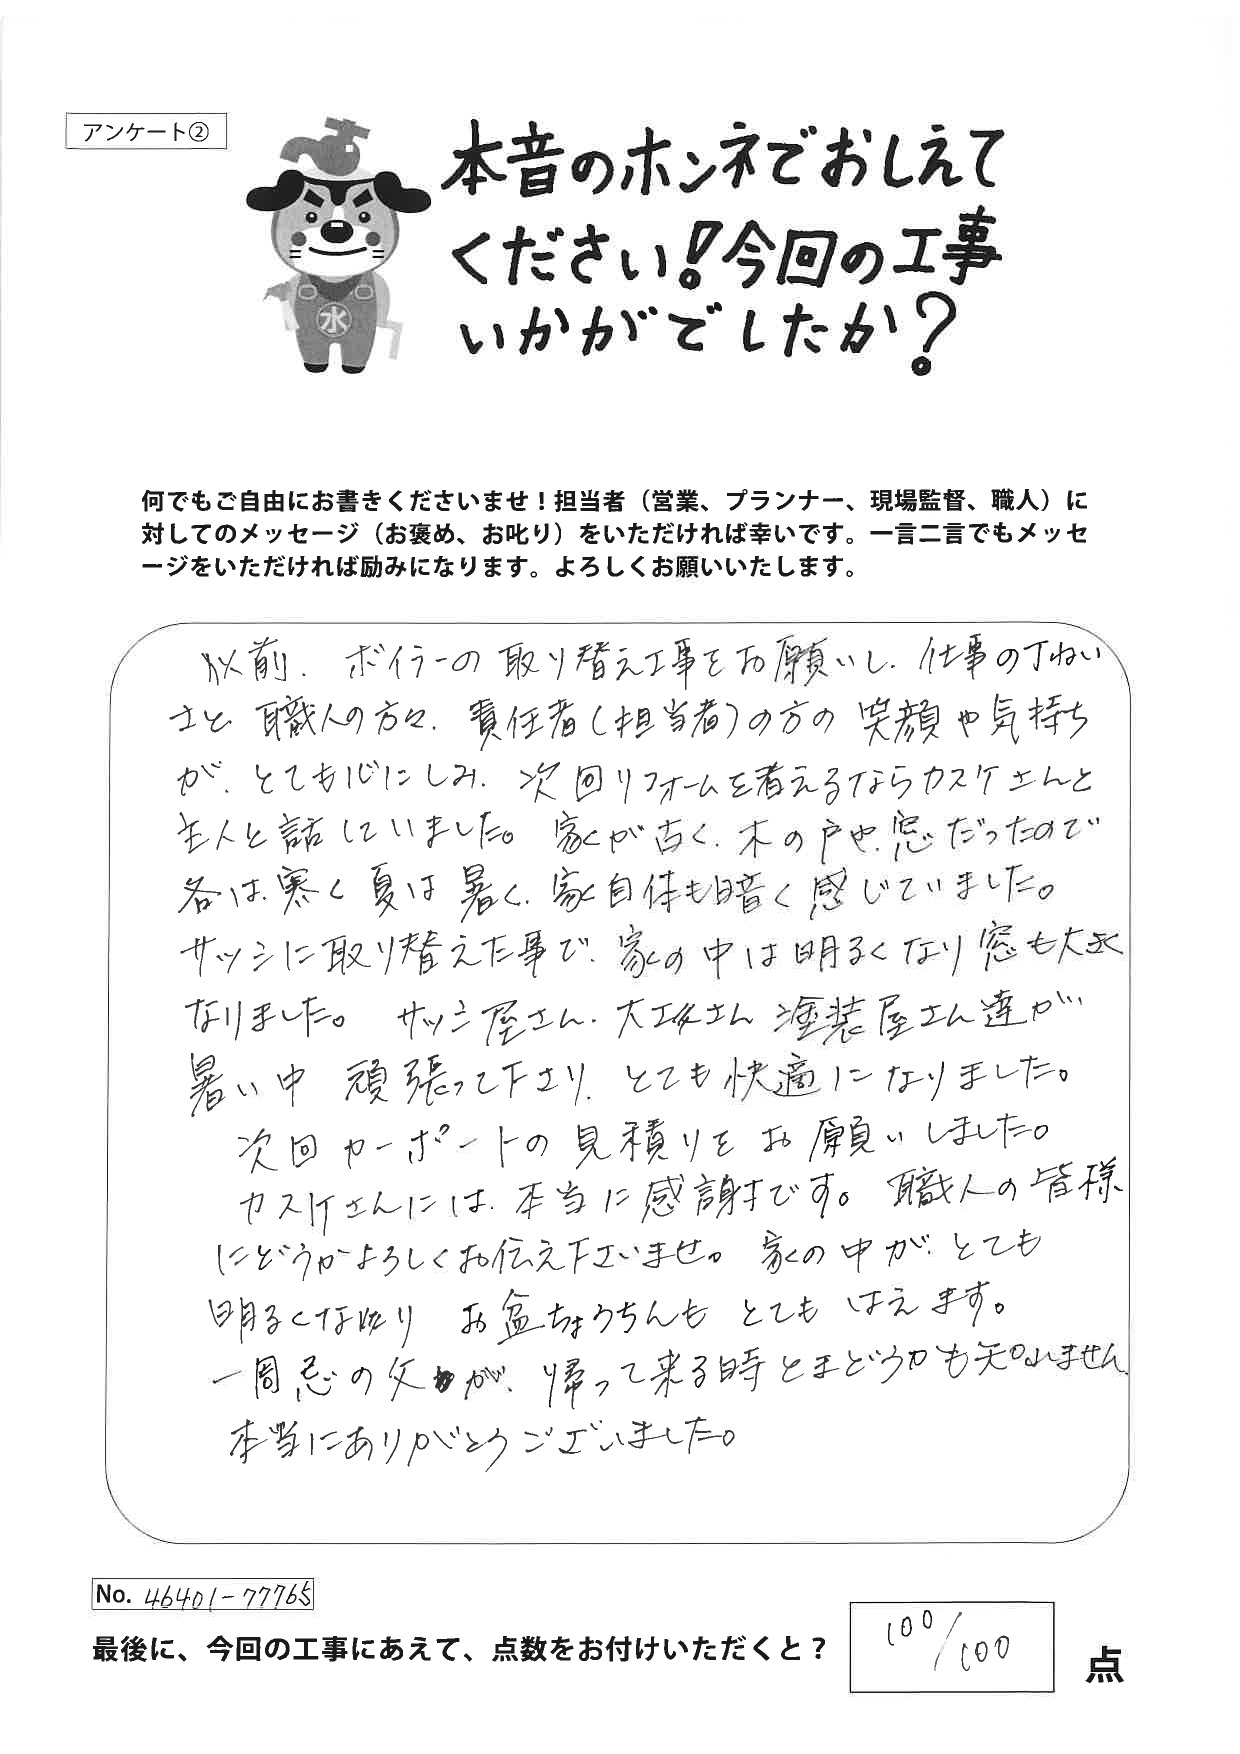 アンケート②
本音のホンネでおしえて
ください!今回の工事
いかがでしたか?
水
何でもご自由にお書きくださいませ！担当者（営業、プランナー、現場監督、職人）に
対してのメッセージ（お褒め、お叱り）をいただければ幸いです。一言二言でもメッセ
ージをいただければ励みになります。よろしくお願いいたします。
以前、ボイラーの取り替え工事をお願いし、仕事の丁ねい
さと職人の方々、責任者(担当者)の方の笑顔や気持ち
が、とても心にしみ、次回リフォームを考えるならカスケさんと
主人と話していました。家が古く、木の戸や、窓だったので
冬は寒く夏は暑く、家自体も暗く感じていました。
サッシに取り替えた事で、家の中は明るくなり窓も大きく
なりました。サッシ屋さん、大工さん 塗装屋さん達が
暑い中 頑張って下さり、とても快適になりました。
次回カーポートの見積りをお願いしました。
カスケさんには、本当に感謝です。職人の皆様
にどうかよろしくお伝え下さいませ。家の中が、とても
明るくなり お盆ちょうちんも とても はえます。
一周忌の父が、帰って来る時とまどうかも知れません
本当にありがとうございました。
No. 46401-77765
最後に、今回の工事にあえて、点数をお付けいただくと？
100/100
点